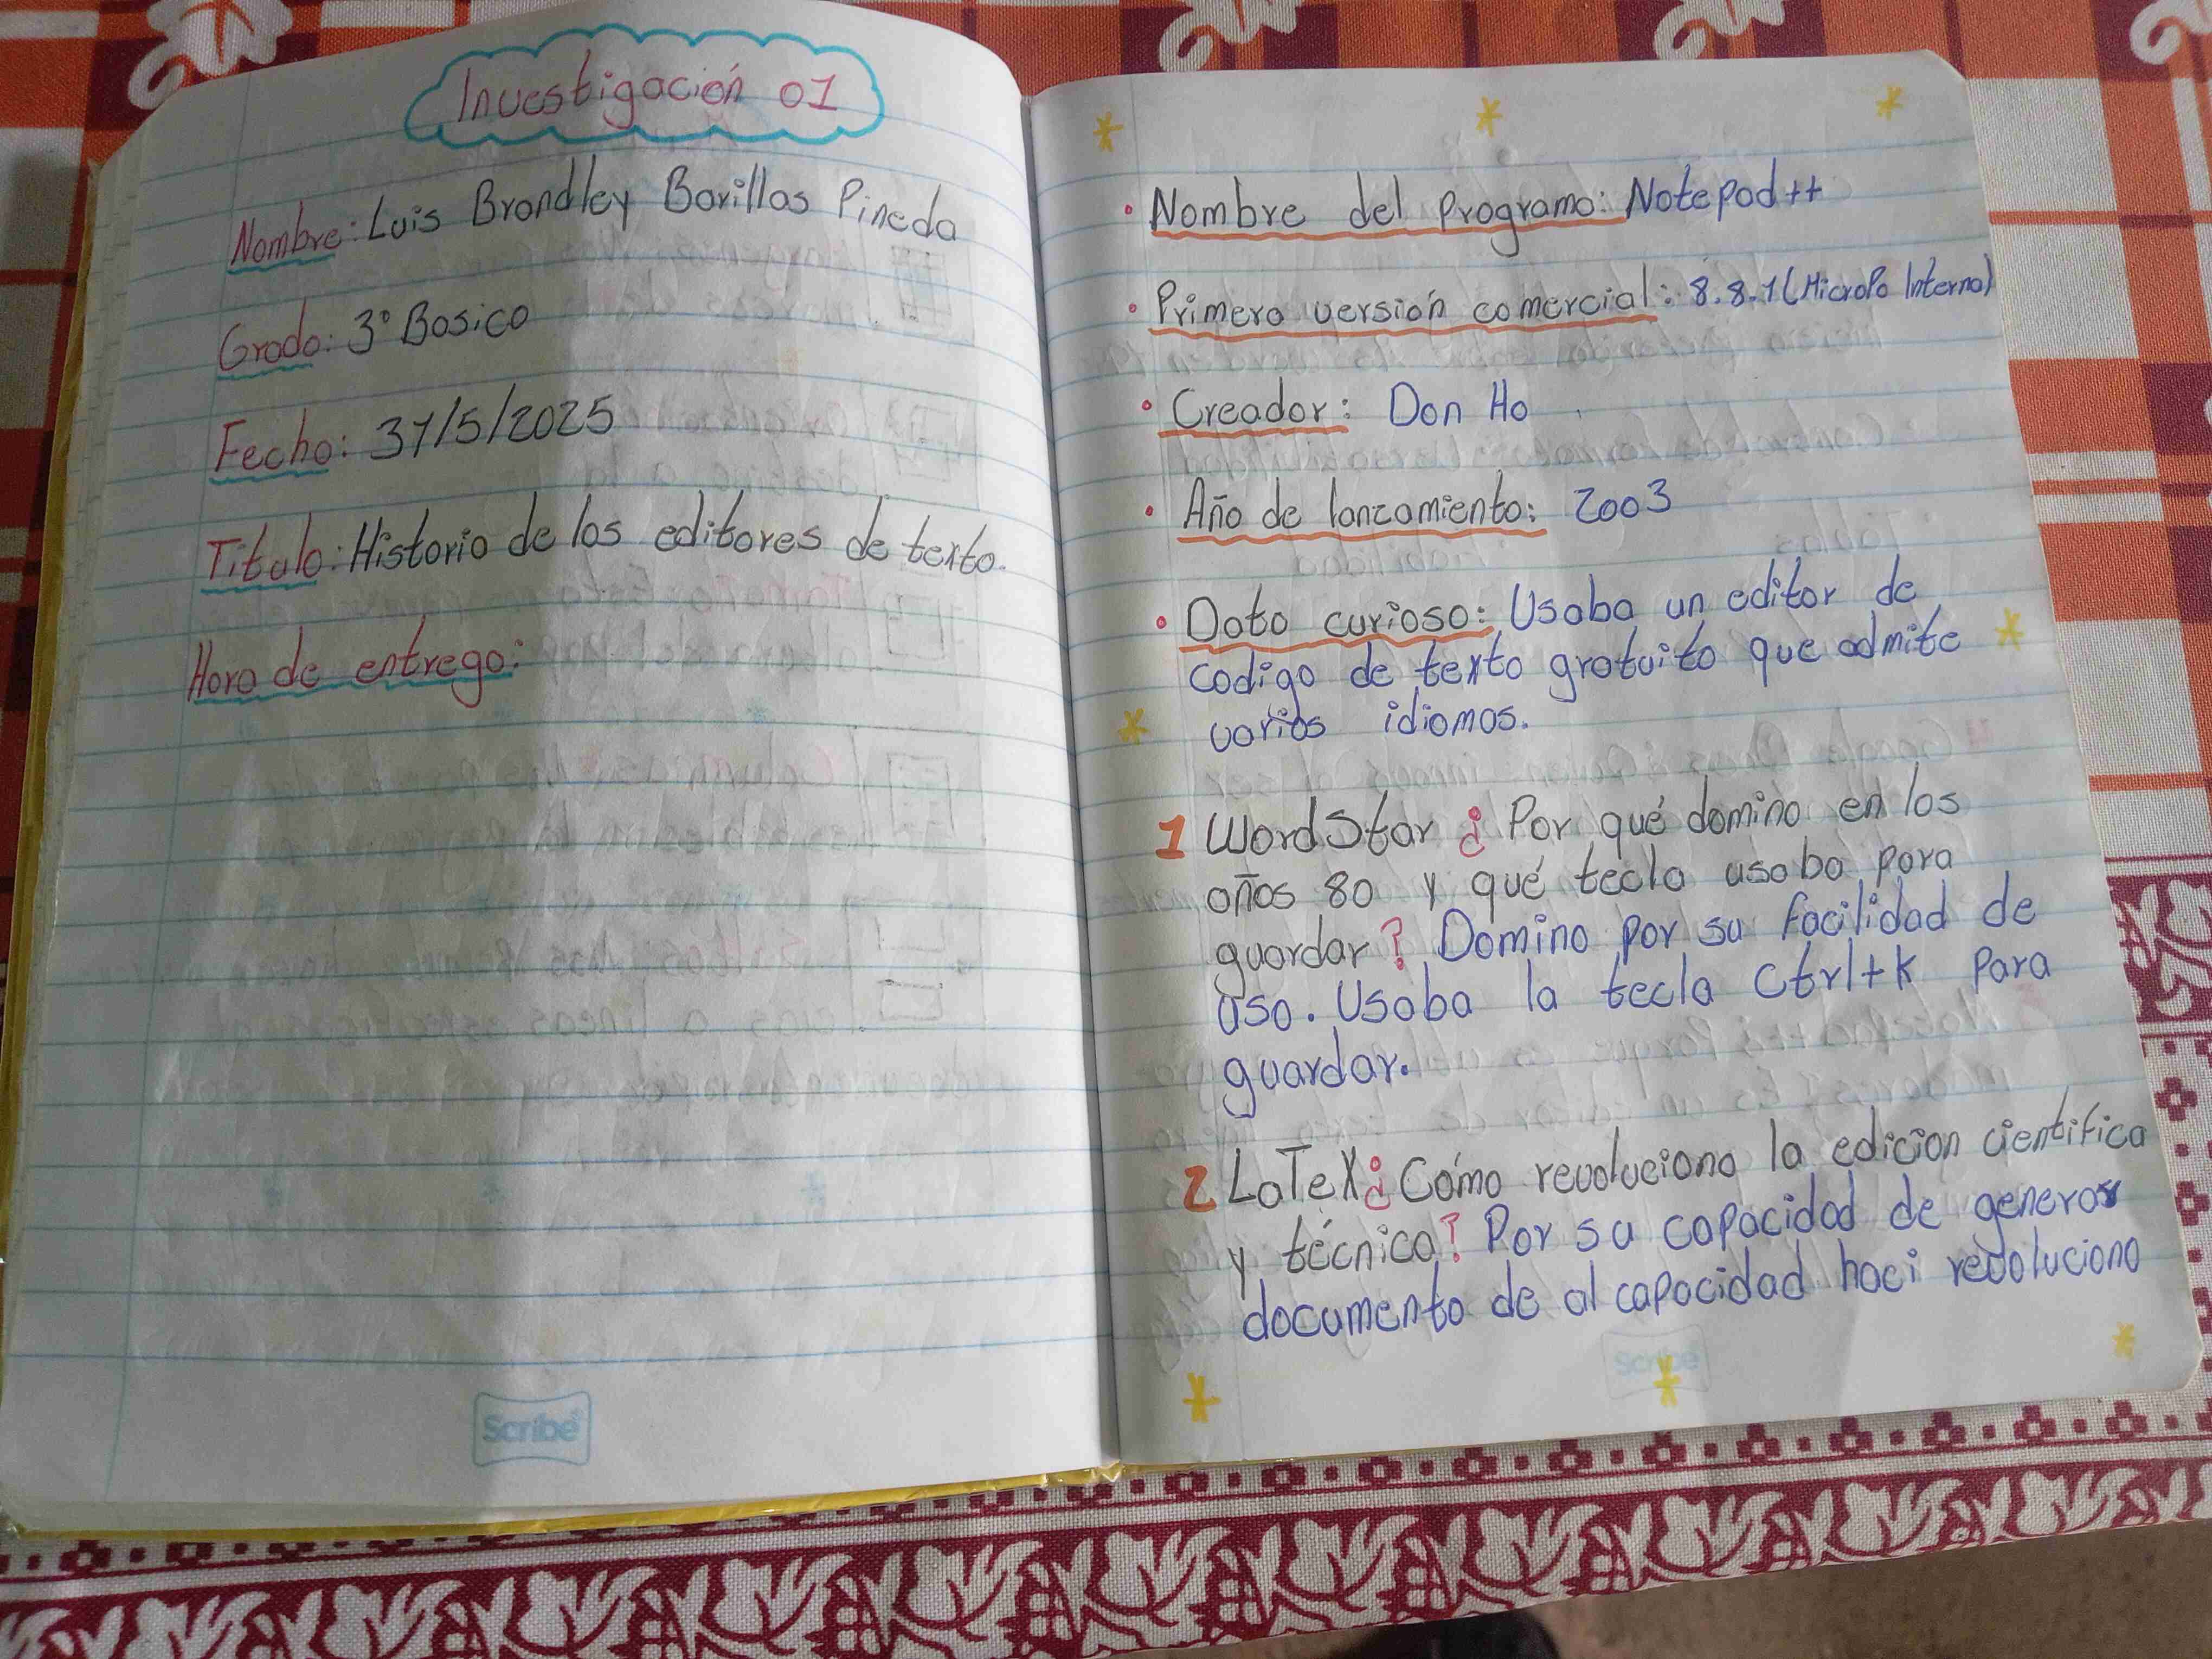 Investigación 01
Nombre: Luis Brandley Barillas Pineda
Grado: 3° Basico
Fecha: 31/5/2025
Titulo: Historia de los editores de texto.
Hora de entrega:
Scribe
• Nombre del programa: Notepad++
• Primera versión comercial: 8.8.1 (Interna)
• Creador: Don Ho
• Año de lanzamiento: 2003
• Dato curioso: Usaba un editor de
codigo de texto gratuito que admite
varios idiomas.
1 WordStar ¿Por qué domino en los
años 80 y qué tecla usaba para
guardar? Domino por su facilidad de
uso. Usaba la tecla Ctrl+K para
guardar.
2 LaTeX ¿Cómo revoluciono la edicion cientifica
y técnica? Por su capacidad de generar
documento de al capacidad haci revoluciono
Scribe